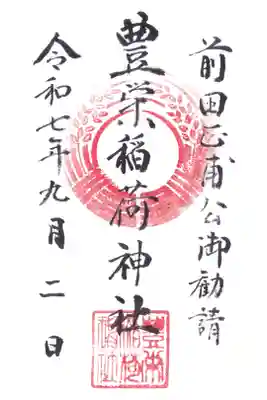 前田正甫公御勧請
豊栄稲荷神社
令和七年九月二日